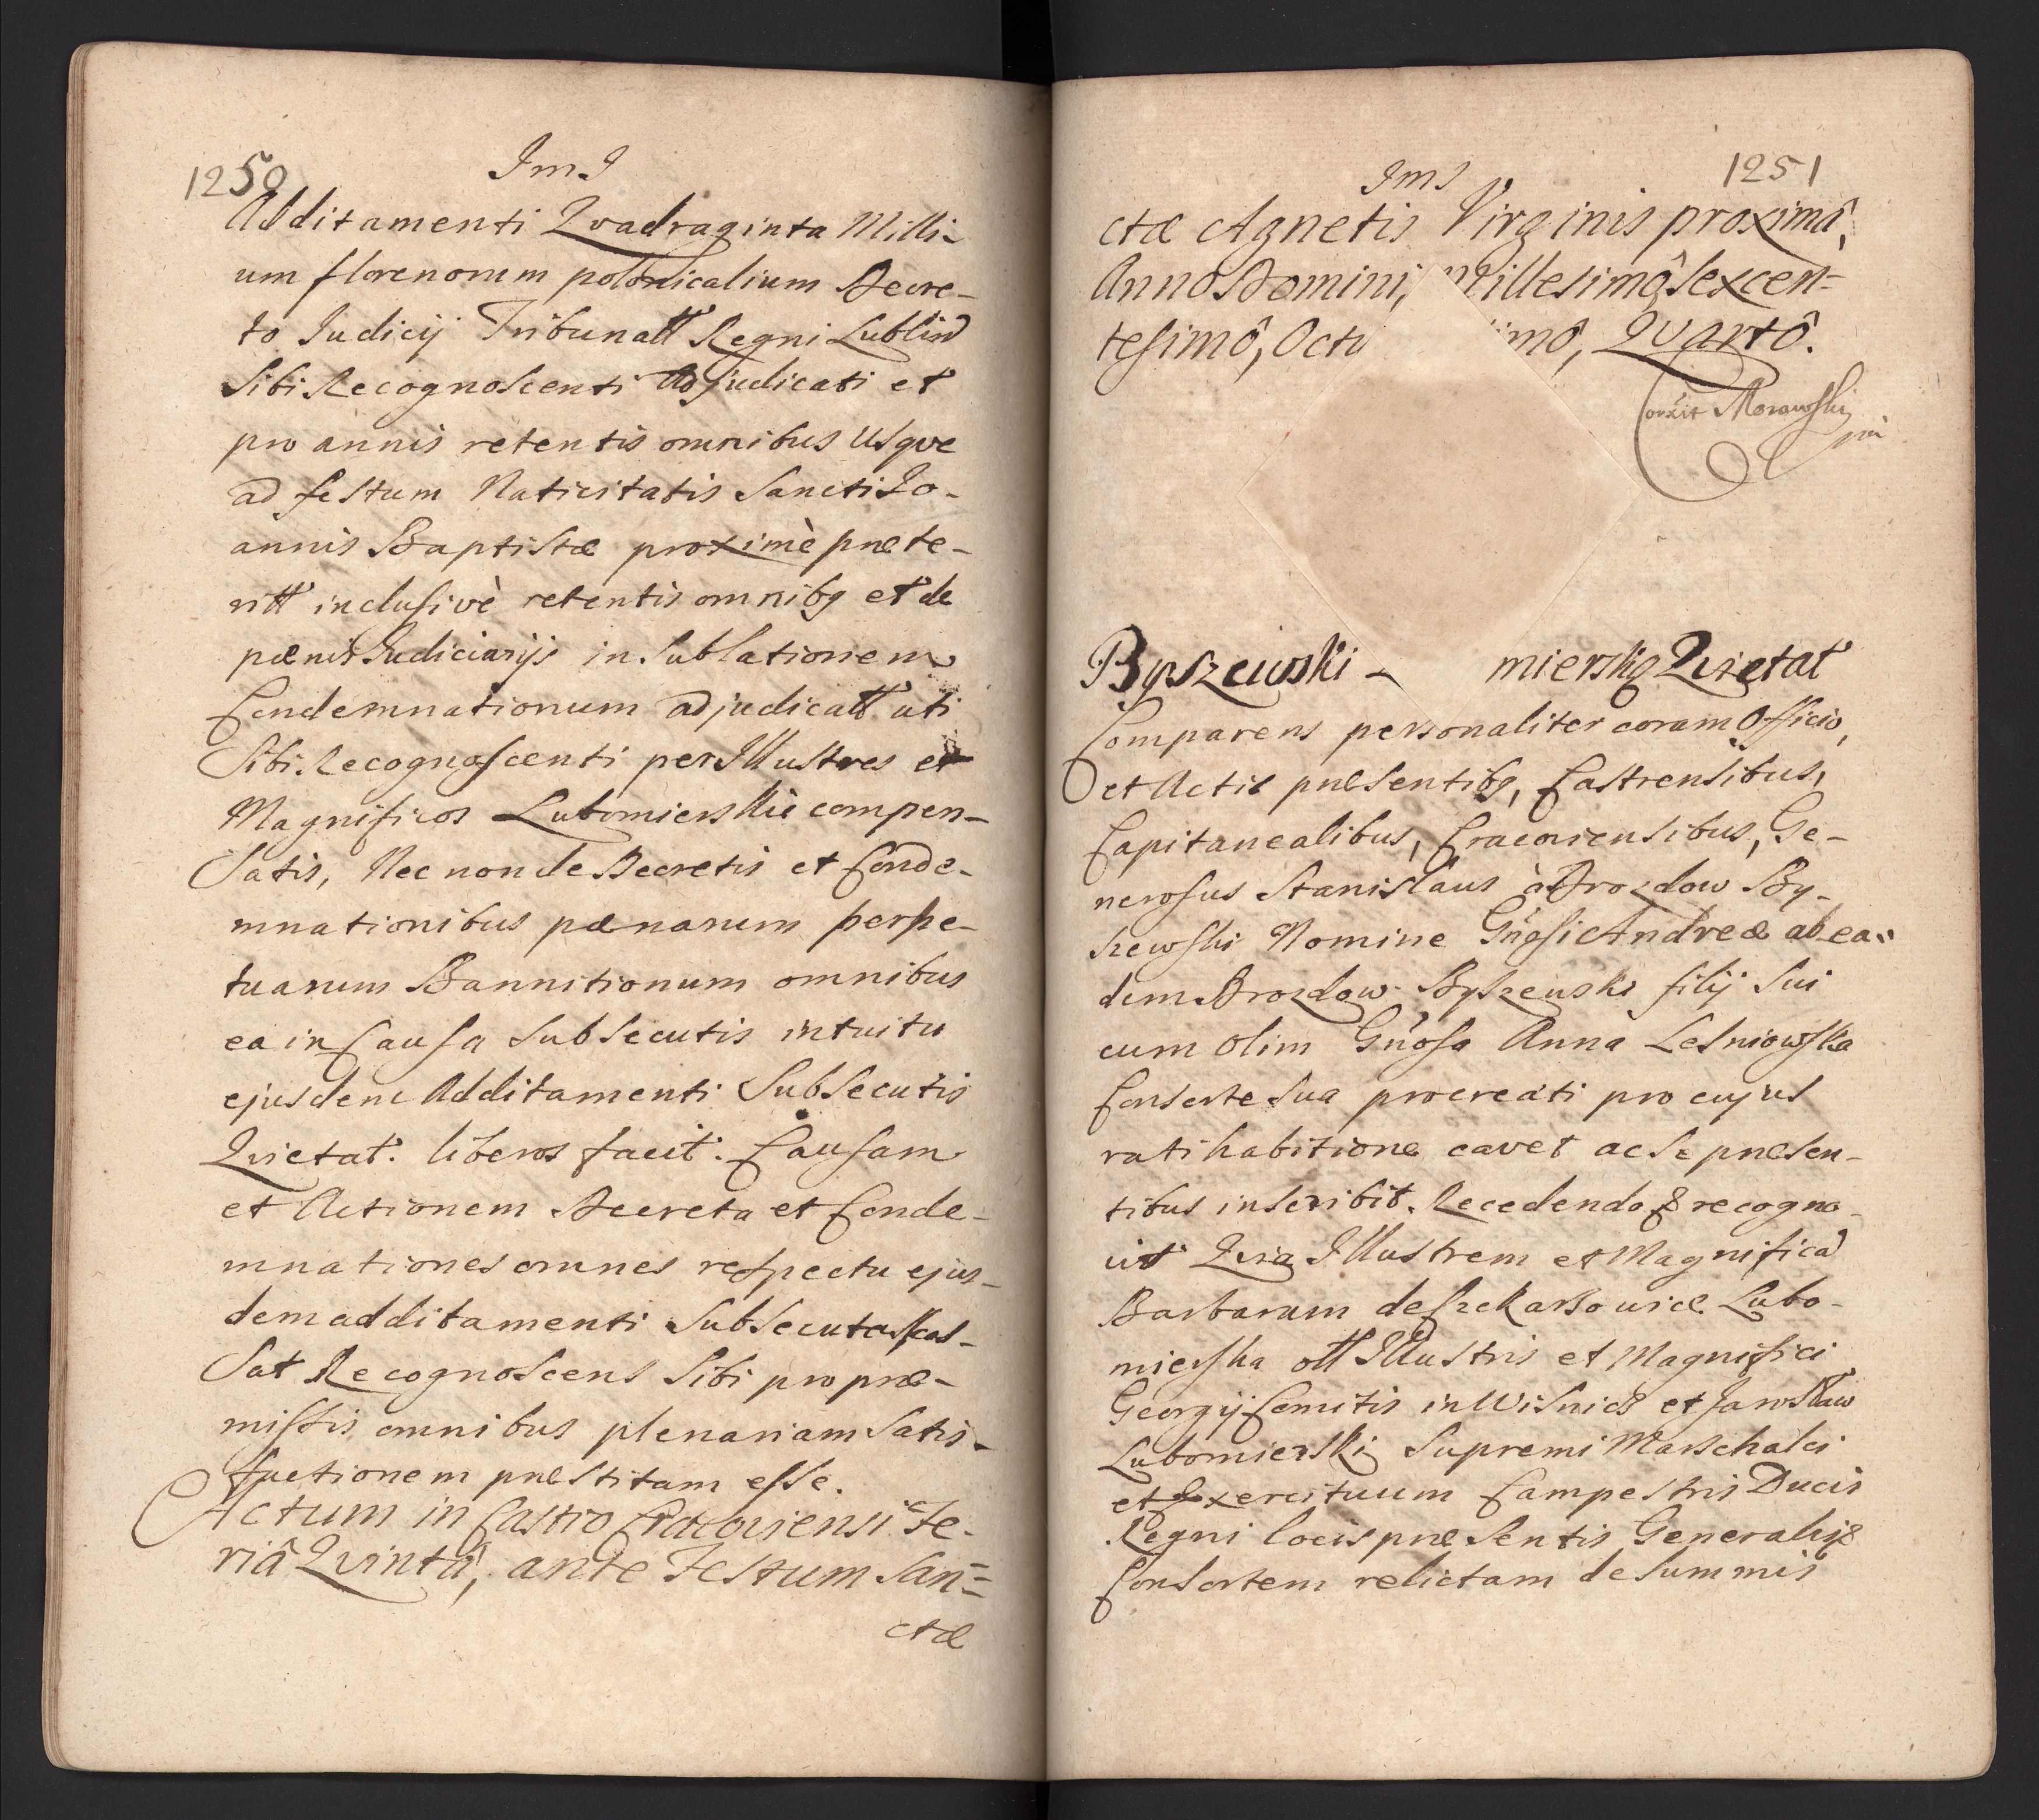 1250
Im I
Additamenti Qvadraginta Milli-
um florenorum polonicalium Decre-
to Iudicij Tribunall Regni Lublin
Sibi Recognoscenti Adjudicati et
pro annis retentis omnibus Usqve
ad festum Nativitatis Sancti Jo-
annis Baptistæ proximè præte-
ritt inclusivè retentis omnibg et de
pænis Iudiciarijs in Sublationem
Condemnationum adjudicatt uti
Sibi Recognoscenti per Illustres et
Magnificos Lubomierskie compen-
Satis, Nec non de Decretis et Conde-
mnationibus pænarum perpe-
tuarum Bannitionum omnibus
ea in Causa Subsecutis intuitu
ejusdem Additamenti Subsecutis
Qvietat. liberos facit. Causam
et Actionem Decreta et Conde-
mnationes omnes respectu ejus-
dem additamenti Subsecutas Cas-
Sat Recognoscens Sibi pro præ-
missis omnibus plenariam Satis-
factionem præstitam esse.
Actum in Castro Cracoviensi Fe-
riâ Qvintâ, ante Festum San=
ctæ
1251
Im I
ctæ Agnetis Virginis proximâ,
Anno Domini, Millesimô Sexcen=
tesimô, Octu imô, Qvartô.
Corâxit Morawski
pâ
Byszewski - mierską Qvietat
Comparens personaliter coram Officio,
et Actis præsentibg, Castrensibus,
Capitanealibus, Cracoviensibus, Ge-
nerosus Stanislaus à Drozdow By-
szewski Nomine Gñosi Andreæ ab ea-
dem Drozdow Byszewski filij Sui
cum olim Gñosa Anna Lesniowska
Conserte Sua procreati pro cujus
ratihabitione cavet ac Se præsen-
tibus inscribit. Recedendo & recogno-
vit Qvia Illustrem et Magnificã
Barbaram de Szekarzowice Lubo-
mierska oll Illustris et Magnifici
Georgij Comitis in Wisnicz et Jaroslaw
Lubomierski Supremi Marschalci
et Exercituum Campestris Ducis
Regni locis præsentis Generalis
Consortem relictam de Summis